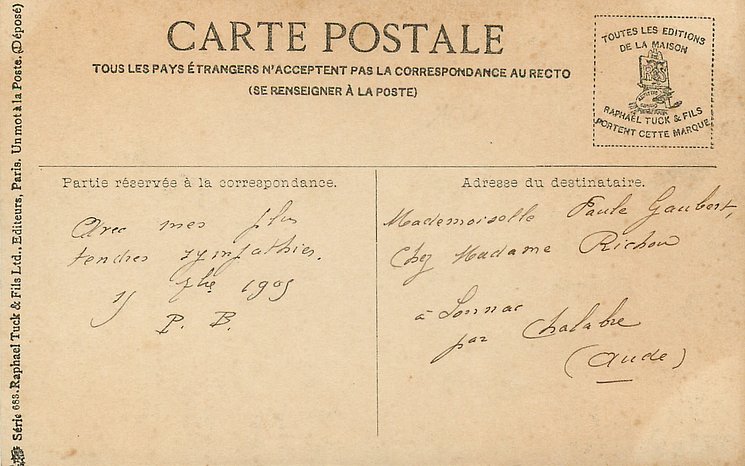 CARTE POSTALE
TOUS LES PAYS ÉTRANGERS N'ACCEPTENT PAS LA CORRESPONDANCE AU RECTO
(SE RENSEIGNER À LA POSTE)
TOUTES LES EDITIONS
DE LA MAISON
RAPHAËL TUCK & FILS
PORTENT CETTE MARQUE
Série 683. Raphael Tuck & Fils Ltd., Editeurs, Paris. Un mot à la Poste. (Déposé)
Partie réservée à la correspondance.
Avec mes plus
tendres sympathies.
1905
P. B.
Adresse du destinataire.
Mademoiselle Paule Gaubert,
Chez Madame Richou
à Sonnac
par Chalabre
(Aude)